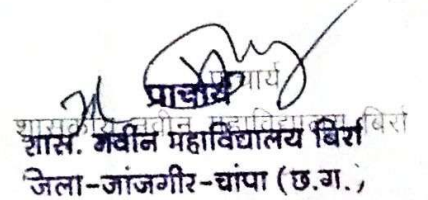 प्राचार्य
शास. नवीन महाविद्यालय बिर्रा
जिला-जांजगीर-चांपा (छ.ग.)